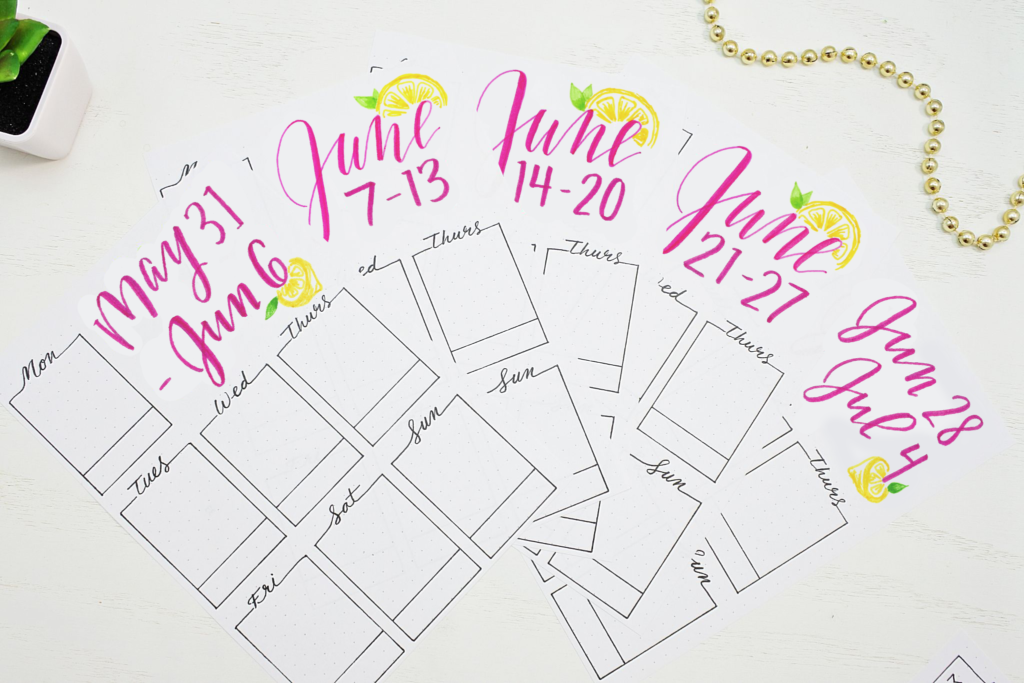 May 31
- Jun 6
June
7-13
June
14-20
June
21-27
Jun 28
Jul 4
Mon
Tues
Wed
Thurs
Fri
Sat
Sun
Thurs
Sun
Thurs
Thurs
Sun
Thurs